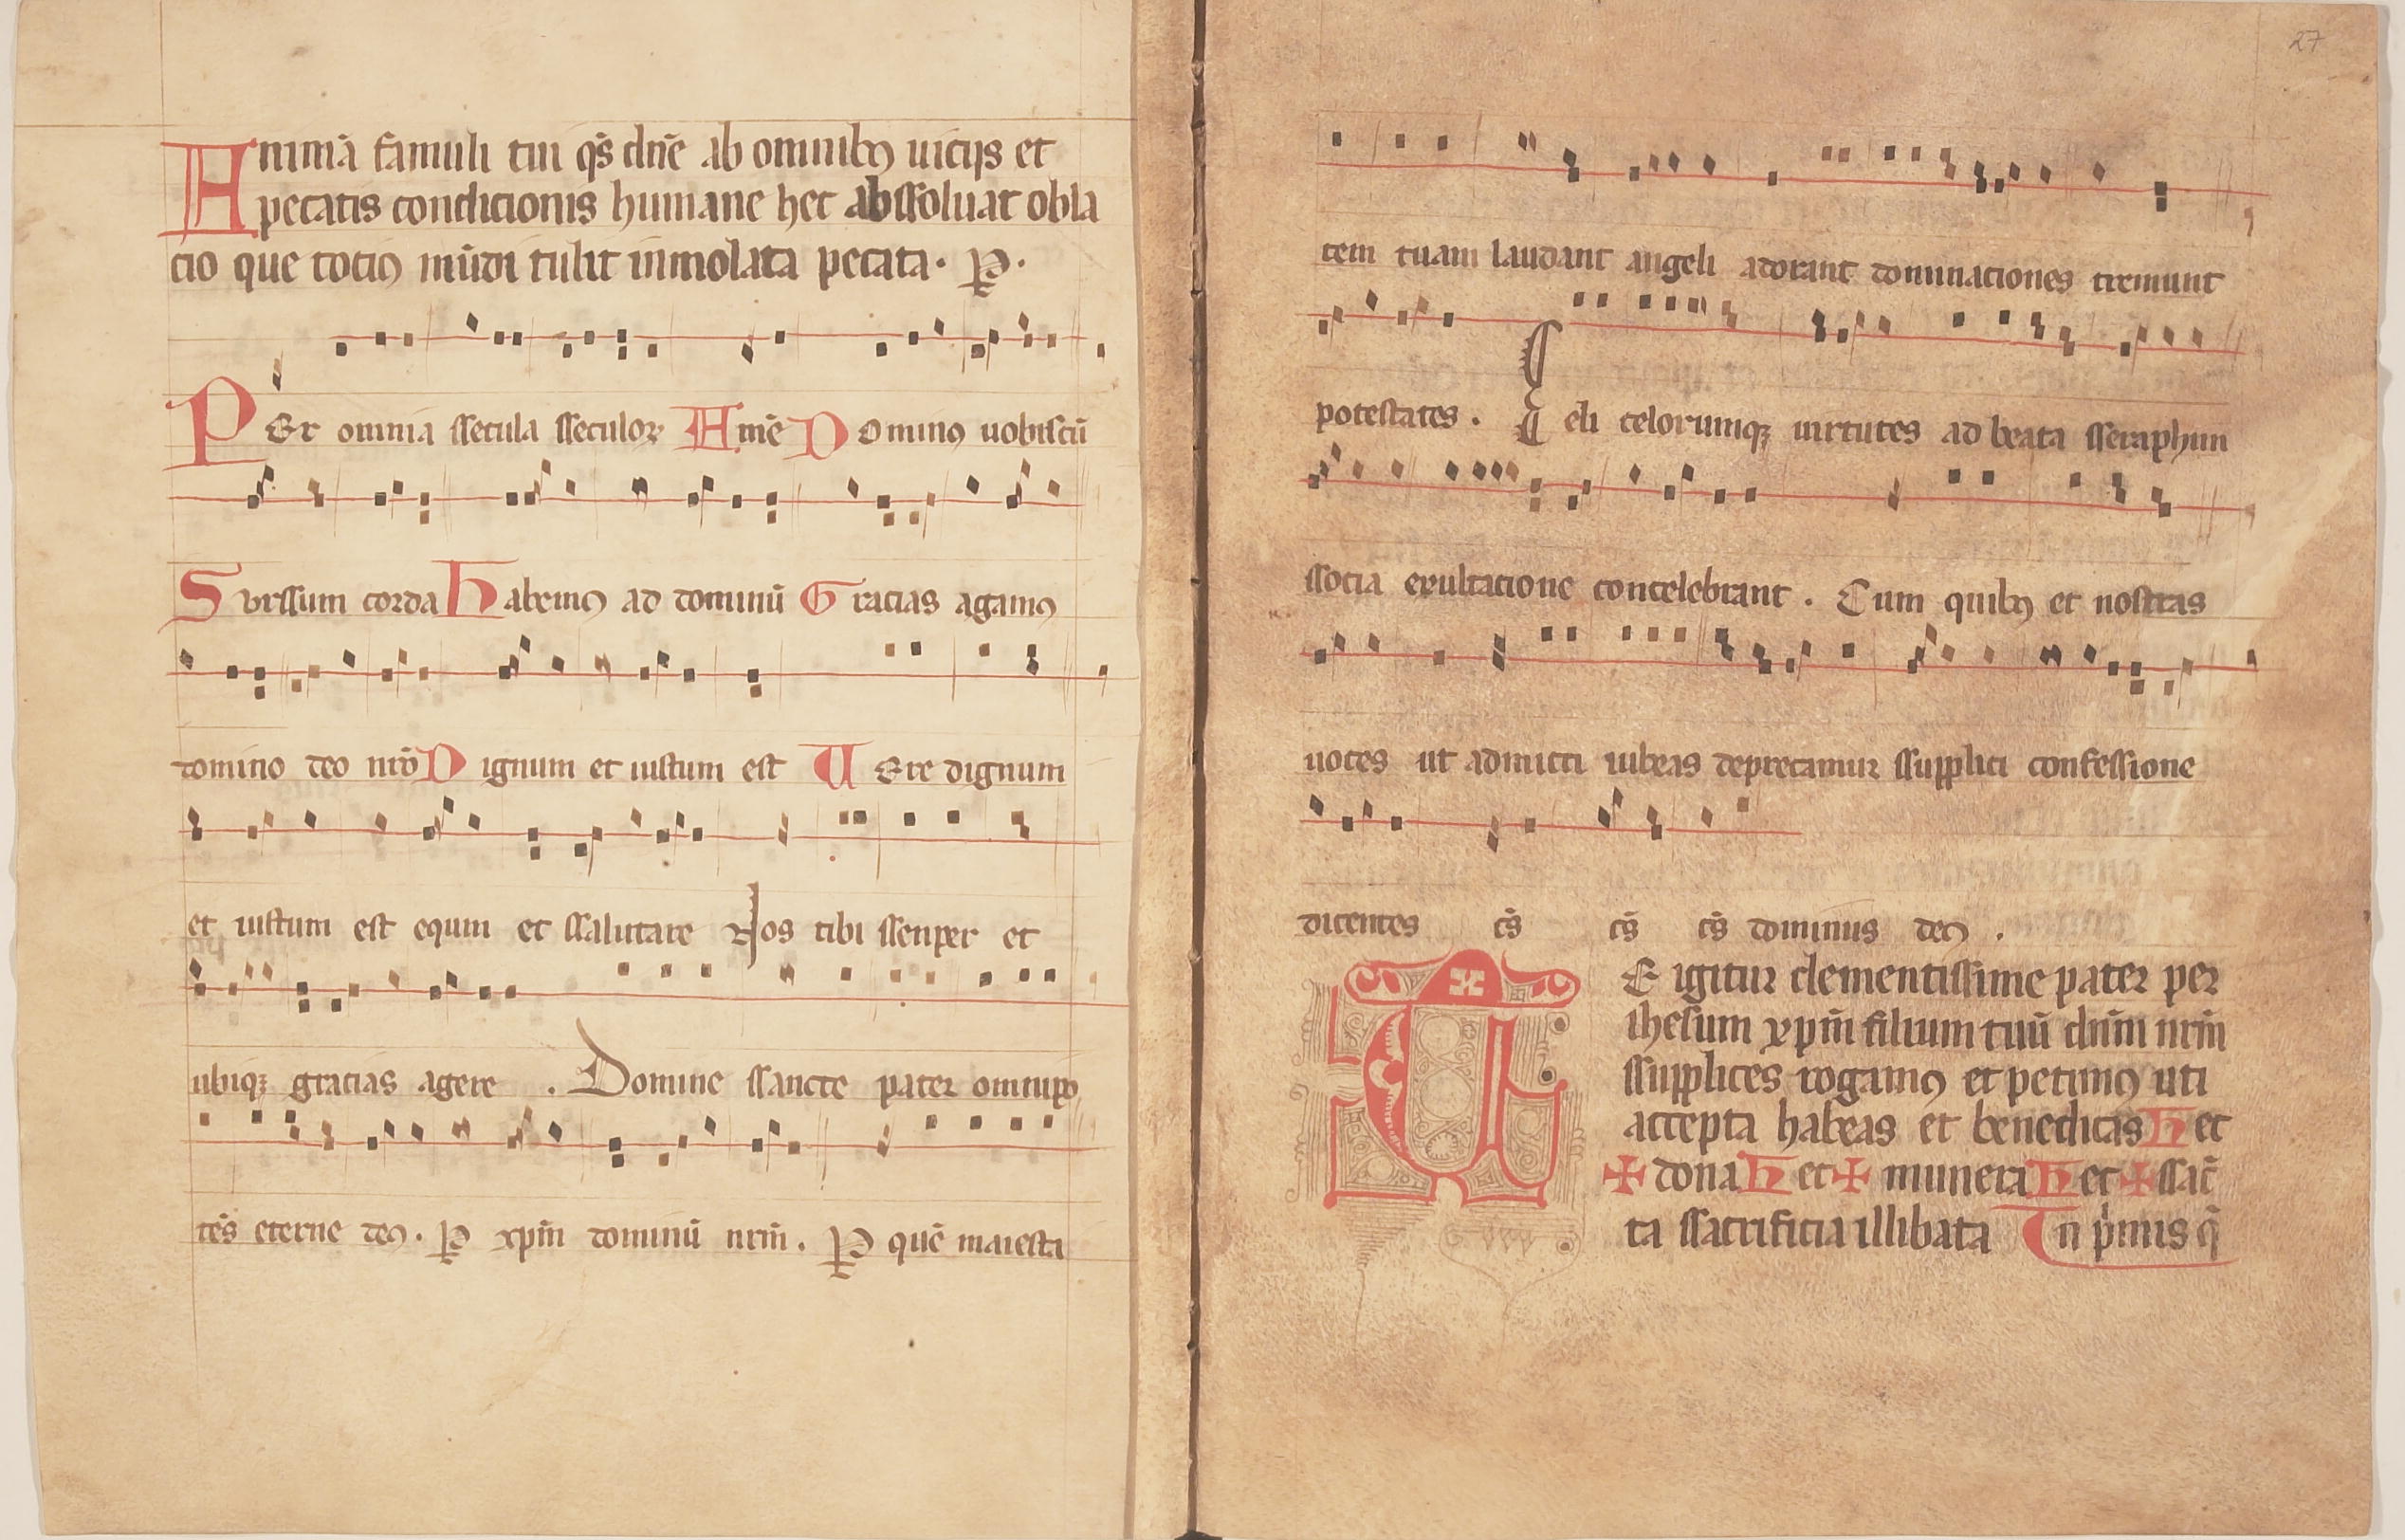 Animā famuli tui qs̄ dn̄e ab omnibꝰ uicijs et
pecatis condicionis humane hec abssoluat obla
cio que tociꝰ mūdi tulit inmolata pecata. ꝑ.
PEr omnia ssecula sseculoꝝ Amē Dominꝰ uobiscū
Surssum corda habemꝰ ad dominū Gracias agamꝰ
domino deo nr̄o Dignum et iustum est UEre dignum
et iustum est equm et ssalutare Nos tibi ssenper et
ubiqꝫ gracias agere . Domine ssancte pater omnipo
tēs eterne deꝰ. ꝑ xp̄m dominū nr̄m. ꝑ quē maiesta
27
tem tuam laudant angeli adorant dominaciones tremunt
potestates. Celi celorumqꝫ uirtutes ad beata sseraphim
ssocia exultacione concelebrant. Cum quibꝰ et nostras
uoces ut admitti iubeas deprecamur ssupplici confessione
dicentes sc̄s sc̄s sc̄s dominus deꝰ .
TE igitur clementissime pater per
ihesum xp̄m filium tuū dn̄m nr̄m
ssupplices rogamꝰ et petimꝰ uti
accepta habeas et benedicas hec
✠ dona hec ✠ munera hec ✠ ssāc
ta ssacrificia illibata In p̄mis q̄